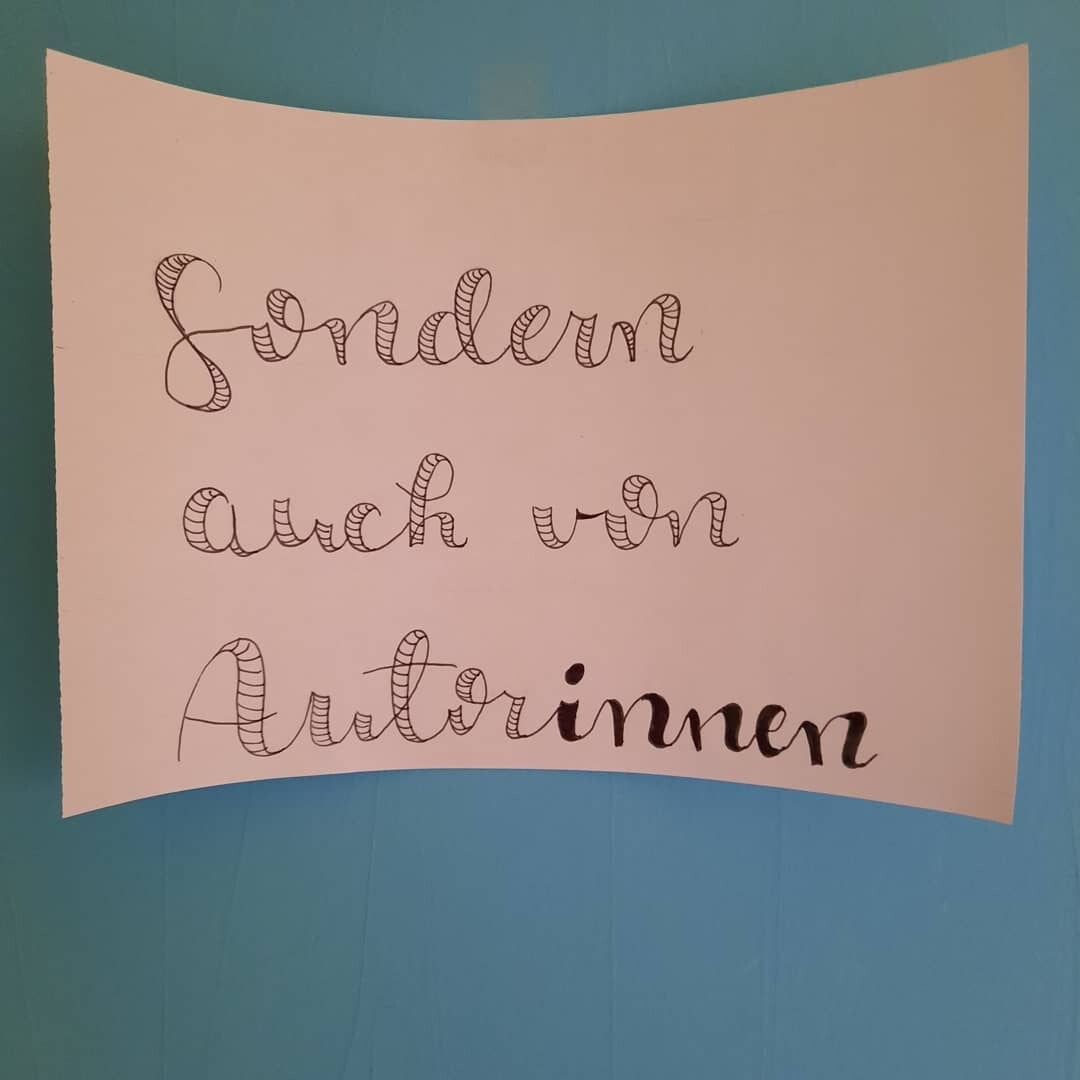 Sondern
auch von
Autorinnen